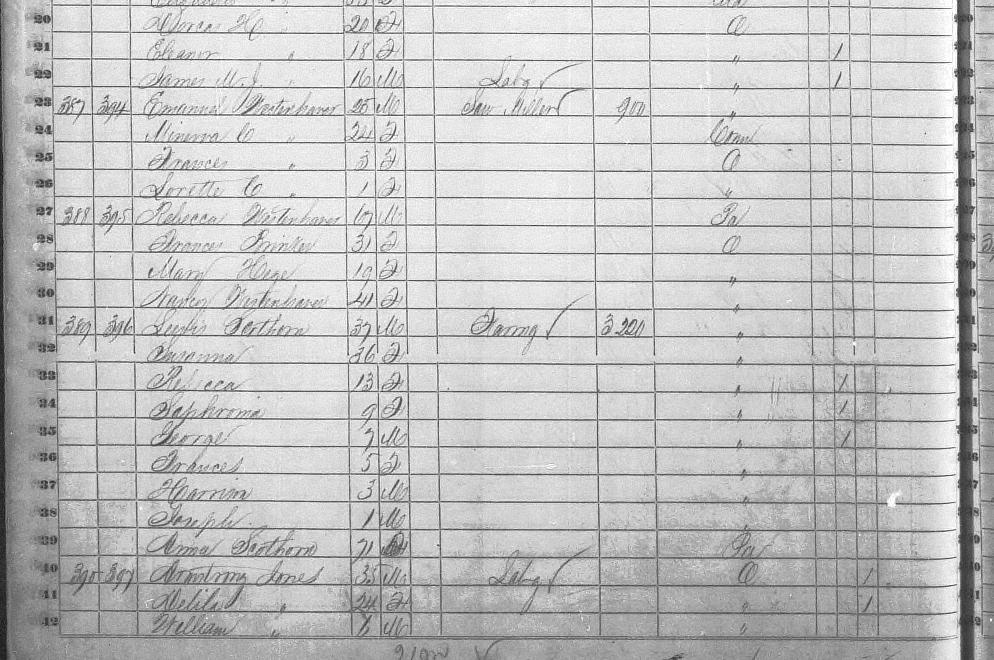 20 Dorcas H. " 20 F O
21 Eleanor " 18 F " 1
22 James M. J. " 16 M Labg " 1
23 387 394 Emanuel Westenhaver 25 M Saw Miller 900 "
24 Minerva C " 24 F Conn
25 Frances " 3 F O
26 Lorette C " 1 F "
27 388 395 Rebecca Westenhaver 67 M Pa
28 Frances 31 F O
29 Mary 19 F "
30 Nancy Westenhaver 41 F "
31 389 396 Lewis Scothorn 37 M Farmg 3220 "
32 Susanna 36 F "
33 Rebecca 13 F " 1
34 Saphronia 9 F " 1
35 George 7 M " 1
36 Frances 5 F "
37 Harrison 3 M "
38 Joseph 1 M "
39 Anna Scothorn 71 Pa
40 390 397 Armstrong Jones 35 M Labg O 1
41 Delila " 24 F " 1
42 William " M "